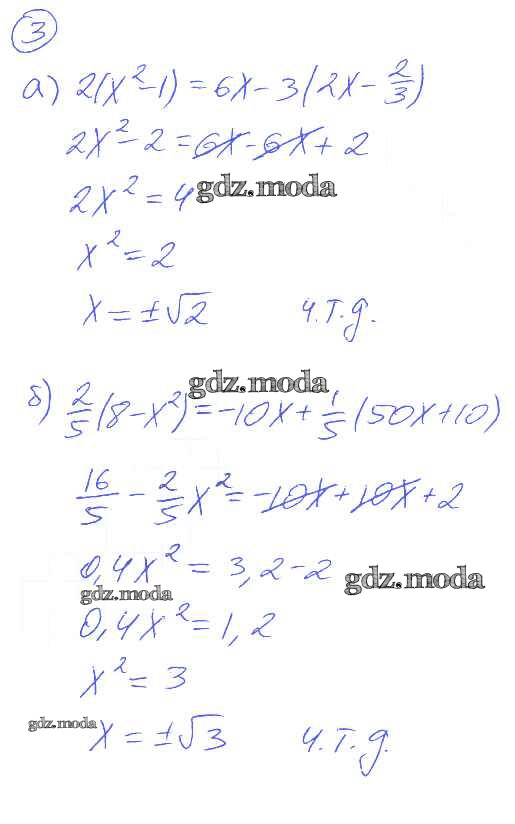 3
а) 2(x²-1)=6x-3(2x-2/3)
2x²-2=6x-6x+2
2x²=4
gdz.moda
x²=2
x=±√2 ч.т.д.
gdz.moda
б) 2/5(8-x²)=-10x+1/5(50x+10)
16/5-2/5x²=-10x+10x+2
0,4x²=3,2-2
gdz.moda
gdz.moda
0,4x²=1,2
x²=3
gdz.moda
x=±√3 ч.т.д.